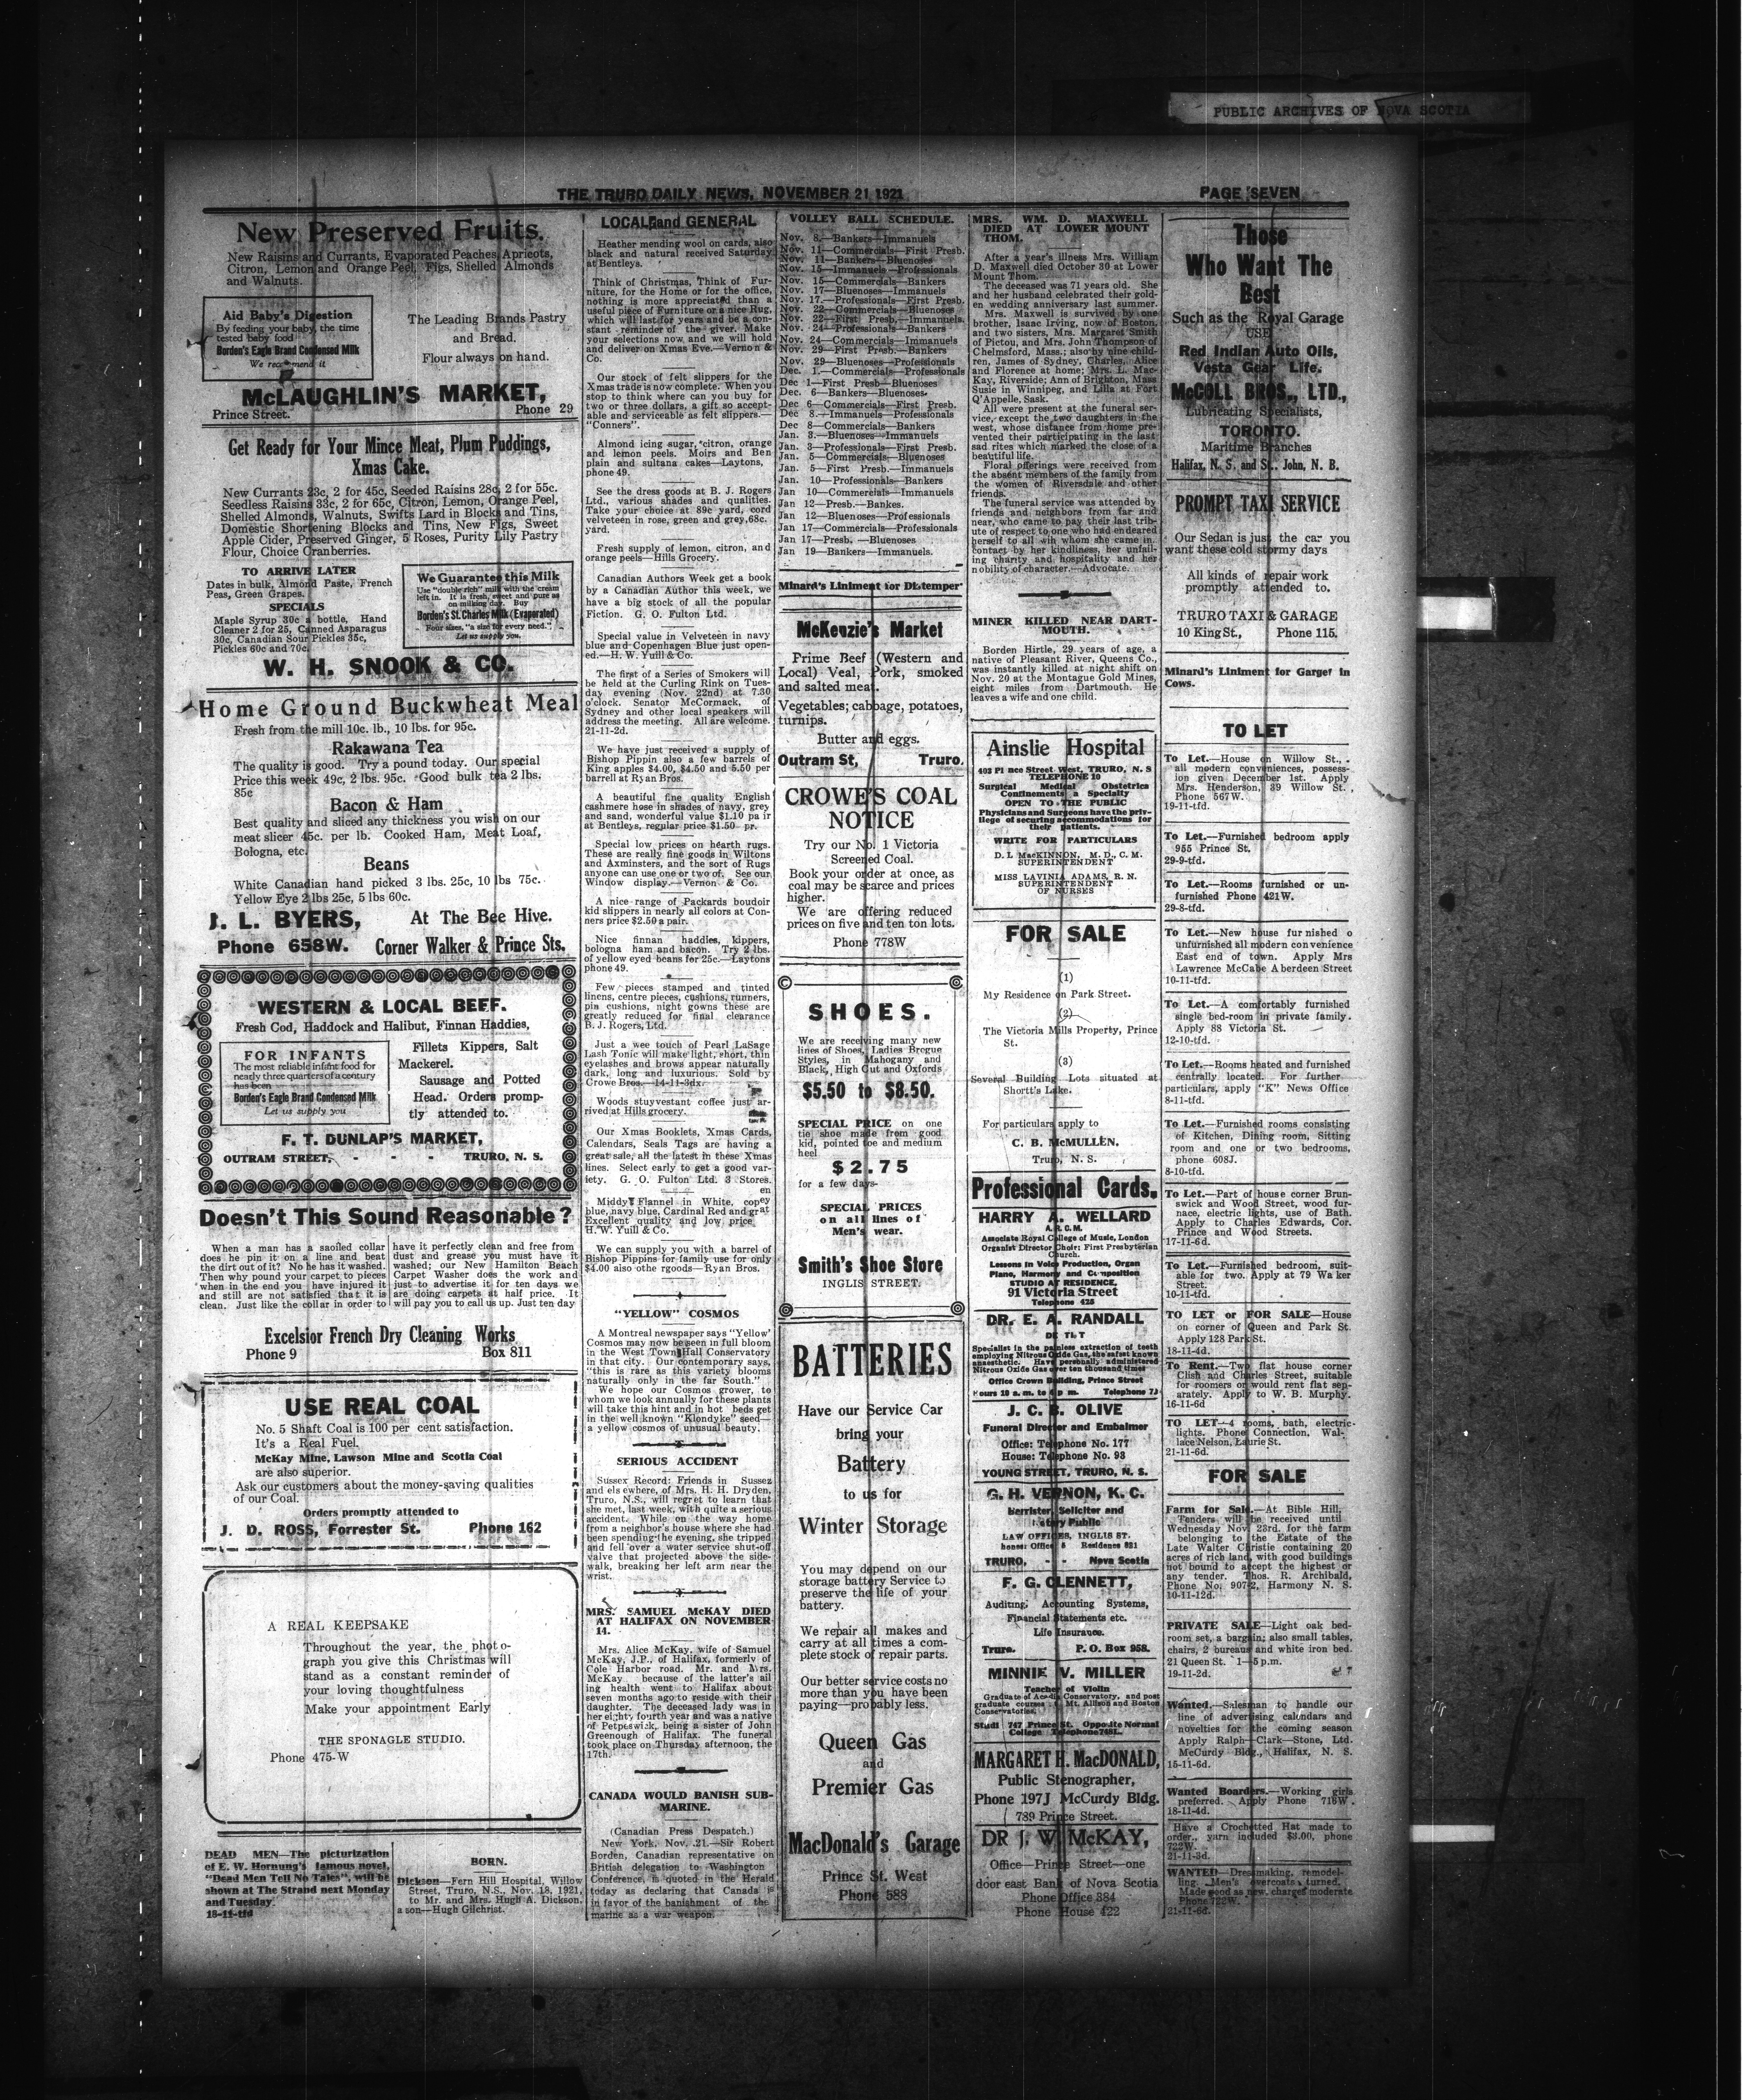 PUBLIC ARCHIVES OF NOVA SCOTIA
THE TRURO DAILY NEWS, NOVEMBER 21 1921
PAGE SEVEN
New Preserved Fruits.
New Raisins and Currants, Evaporated Peaches, Apricots,
Citron, Lemon and Orange Peel, Figs, Shelled Almonds
and Walnuts.
Aid Baby's Digestion
By feeding your baby, the time
tested baby food
Borden's Eagle Brand Condensed Milk
We recommend it
The Leading Brands Pastry
and Bread.
Flour always on hand.
McLAUGHLIN'S MARKET,
Prince Street.
Phone 29
Get Ready for Your Mince Meat, Plum Puddings,
Xmas Cake.
New Currants 23c, 2 for 45c, Seeded Raisins 28c, 2 for 55c.
Seedless Raisins 33c, 2 for 65c, Citron, Lemon, Orange Peel,
Shelled Almonds, Walnuts, Swifts Lard in Blocks and Tins,
Domestic Shortening Blocks and Tins, New Figs, Sweet
Apple Cider, Preserved Ginger, 5 Roses, Purity Lily Pastry
Flour, Choice Cranberries.
TO ARRIVE LATER
Dates in bulk, Almond Paste, French
Peas, Green Grapes.
SPECIALS
Maple Syrup 30c a bottle, Hand
Cleaner 2 for 25, Canned Asparagus
30c, Canadian Sour Pickles 35c,
Pickles 60c and 70c.
We Guarantee this Milk
Use "double rich" milk with the cream
left in. It is fresh, sweet and pure as
on milking day. Buy
Borden's St. Charles Milk (Evaporated)
Four sizes, "a size for every need."
Let us supply you.
W. H. SNOOK & CO.
Home Ground Buckwheat Meal
Fresh from the mill 10c. lb., 10 lbs. for 95c.
Rakawana Tea
The quality is good. Try a pound today. Our special
Price this week 49c, 2 lbs. 95c. Good bulk tea 2 lbs.
85c
Bacon & Ham
Best quality and sliced any thickness you wish on our
meat slicer 45c. per lb. Cooked Ham, Meat Loaf,
Bologna, etc.
Beans
White Canadian hand picked 3 lbs. 25c, 10 lbs 75c.
Yellow Eye 2 lbs 25c, 5 lbs 60c.
J. L. BYERS,
At The Bee Hive.
Phone 658W.
Corner Walker & Prince Sts.
WESTERN & LOCAL BEEF.
Fresh Cod, Haddock and Halibut, Finnan Haddies,
FOR INFANTS
The most reliable infant food for
nearly three quarters of a century
has been
Borden's Eagle Brand Condensed Milk
Let us supply you
Fillets Kippers, Salt
Mackerel.
Sausage and Potted
Head. Orders promp-
tly attended to.
F. T. DUNLAP'S MARKET,
OUTRAM STREET, - - - TRURO, N. S.
Doesn't This Sound Reasonable?
When a man has a saoiled collar
does he pin it on a line and beat
the dirt out of it? No he has it washed.
Then why pound your carpet to pieces
when in the end you have injured it
and still are not satisfied that it is
clean. Just like the collar in order to
have it perfectly clean and free from
dust and grease you must have it
washed; our New Hamilton Beach
Carpet Washer does the work and
just to advertise it for ten days we
are doing carpets at half price. It
will pay you to call us up. Just ten day
Excelsior French Dry Cleaning Works
Phone 9
Box 811
USE REAL COAL
No. 5 Shaft Coal is 100 per cent satisfaction.
It's a Real Fuel.
McKay Mine, Lawson Mine and Scotia Coal
are also superior.
Ask our customers about the money-saving qualities
of our Coal.
Orders promptly attended to
J. D. ROSS, Forrester St.
Phone 162
A REAL KEEPSAKE
Throughout the year, the photo-
graph you give this Christmas will
stand as a constant reminder of
your loving thoughtfulness
Make your appointment Early
THE SPONAGLE STUDIO.
Phone 475-W
DEAD MEN—The picturization
of E. W. Hornung's famous novel,
"Dead Men Tell No Tales", will be
shown at The Strand next Monday
and Tuesday.
18-11-tfd
BORN.
Dickson—Fern Hill Hospital, Willow
Street, Truro, N.S., Nov. 18, 1921,
to Mr. and Mrs. Hugh A. Dickson,
a son—Hugh Gilchrist.
LOCAL and GENERAL
Heather mending wool on cards, also
black and natural received Saturday
at Bentleys.
Think of Christmas, Think of Fur-
niture, for the Home or for the office,
nothing is more appreciated than a
useful piece of Furniture or a nice Rug,
which will last for years and be a con-
stant reminder of the giver. Make
your selections now, and we will hold
and deliver on Xmas Eve.—Vernon &
Co.
Our stock of felt slippers for the
Xmas trade is now complete. When you
stop to think where can you buy for
two or three dollars, a gift so accept-
able and serviceable as felt slippers.—
"Conners".
Almond icing sugar, citron, orange
and lemon peels. Moirs and Ben
plain and sultana cakes—Laytons,
phone 49.
See the dress goods at B. J. Rogers
Ltd., various shades and qualities.
Take your choice at 89c yard, cord
velveteen in rose, green and grey, 68c.
yard.
Fresh supply of lemon, citron, and
orange peels—Hills Grocery.
Canadian Authors Week get a book
by a Canadian Author this week, we
have a big stock of all the popular
Fiction. G. O. Fulton Ltd.
Special value in Velveteen in navy
blue and Copenhagen Blue just open-
ed.—H. W. Yuill & Co.
The first of a Series of Smokers will
be held at the Curling Rink on Tues-
day evening (Nov. 22nd) at 7.30
o'clock. Senator McCormack, of
Sydney and other local speakers will
address the meeting. All are welcome.
21-11-2d.
We have just received a supply of
Bishop Pippin also a few barrels of
King apples $4.00, $4.50 and 5.50 per
barrell at Ryan Bros.
A beautiful fine quality English
cashmere hose in shades of navy, grey
and sand, wonderful value $1.10 pair
at Bentleys, regular price $1.50 pr.
Special low prices on hearth rugs.
These are really fine goods in Wiltons
and Axminsters, and the sort of Rugs
anyone can use one or two of. See our
Window display.—Vernon & Co.
A nice range of Packards boudoir
kid slippers in nearly all colors at Con-
ners price $2.50 a pair.
Nice finnan haddies, kippers,
bologna ham and bacon. Try 2 lbs.
of yellow eyed beans for 25c.—Laytons
phone 49.
Few pieces stamped and tinted
linens, centre pieces, cushions, runners,
pin cushions, night gowns these are
greatly reduced for final clearance
B. J. Rogers, Ltd.
Just a wee touch of Pearl LaSage
Lash Tonic will make light, short, thin
eyelashes and brows appear naturally
dark, long and luxurious. Sold by
Crowe Bros.—14-11-3dx.
Woods stuyvestant coffee just ar-
rived at Hills grocery.
Our Xmas Booklets, Xmas Cards,
Calendars, Seals Tags are having a
great sale, all the latest in these Xmas
lines. Select early to get a good var-
iety. G. O. Fulton Ltd. 3 Stores.
Middy Flannel in White, copen
blue, navy blue, Cardinal Red and grey
Excellent quality and low price at
H. W. Yuill & Co.
We can supply you with a barrel of
Bishop Pippins for family use for only
$4.00 also othe rgoods—Ryan Bros.
"YELLOW" COSMOS
A Montreal newspaper says "Yellow"
Cosmos may now be seen in full bloom
in the West Town Hall Conservatory
in that city. Our contemporary says,
"this is rare as this variety blooms
naturally only in the far South."
We hope our Cosmos grower, to
whom we look annually for these plants
will take this hint and in hot beds get
in the well known "Klondyke" seed—
a yellow cosmos of unusual beauty.
SERIOUS ACCIDENT
Sussex Record: Friends in Sussex
and elsewhere, of Mrs. H. H. Dryden,
Truro, N.S., will regret to learn that
she met, last week, with quite a serious
accident. While on the way home
from a neighbor's house where she had
been spending the evening, she tripped
and fell over a water service shut-off
valve that projected above the side-
walk, breaking her left arm near the
wrist.
MRS. SAMUEL McKAY DIED
AT HALIFAX ON NOVEMBER
14.
Mrs. Alice McKay, wife of Samuel
McKay, J.P., of Halifax, formerly of
Cole Harbor road. Mr. and Mrs.
McKay because of the latter's ail
ing health went to Halifax about
seven months ago to reside with their
daughter. The deceased lady was in
her eighty fourth year and was a native
of Petpeswick, being a sister of John
Greenough of Halifax. The funeral
took place on Thursday afternoon, the
17th.
CANADA WOULD BANISH SUB-
MARINE.
(Canadian Press Despatch.)
New York, Nov. 21.—Sir Robert
Borden, Canadian representative on
British delegation to Washington
Conference, is quoted in the Herald
today as declaring that Canada is
in favor of the banishment of the
marine as a war weapon.
VOLLEY BALL SCHEDULE.
Nov. 8.—Bankers—Immanuels
Nov. 11—Commercials—First Presb.
Nov. 11—Bankers—Bluenoses
Nov. 15—Immanuels—Professionals
Nov. 15—Commercials—Bankers
Nov. 17—Bluenoses—Immanuels
Nov. 17.—Professionals—First Presb.
Nov. 22—Commercials—Bluenoses
Nov. 22—First Presb.—Immanuels.
Nov. 24—Professionals—Bankers
Nov. 24—Commercials—Immanuels
Nov. 29—First Presb.—Bankers
Nov. 29—Bluenoses—Professionals
Dec. 1.—Commercials—Professionals
Dec 1—First Presb—Bluenoses
Dec. 6—Bankers—Bluenoses.
Dec 6—Commercials—First Presb.
Dec 8.—Immanuels—Professionals
Dec 8—Commercials—Bankers
Jan. 3.—Bluenoses—Immanuels
Jan. 3—Professionals—First Presb.
Jan. 5—Commercials—Bluenoses
Jan. 5—First Presb.—Immanuels
Jan. 10—Professionals—Bankers
Jan 10—Commercials—Immanuels
Jan 12—Presb.—Bankes.
Jan 12—Bluenoses—Professionals
Jan 17—Commercials—Professionals
Jan 17—Presb. —Bluenoses
Jan 19—Bankers—Immanuels.
Minard's Liniment for Distemper
McKenzie's Market
Prime Beef (Western and
Local) Veal, Pork, smoked
and salted meat.
Vegetables; cabbage, potatoes,
turnips.
Butter and eggs.
Outram St, Truro.
CROWE'S COAL
NOTICE
Try our No. 1 Victoria
Screened Coal.
Book your order at once, as
coal may be scarce and prices
higher.
We are offering reduced
prices on five and ten ton lots.
Phone 778W
SHOES.
We are receiving many new
lines of Shoes, Ladies Brogue
Styles, in Mahogany and
Black, High Cut and Oxfords
$5.50 to $8.50.
SPECIAL PRICE on one
tie shoe made from good
kid, pointed toe and medium
heel
$2.75
for a few days-
SPECIAL PRICES
on all lines of
Men's wear.
Smith's Shoe Store
INGLIS STREET.
BATTERIES
Have our Service Car
bring your
Battery
to us for
Winter Storage
You may depend on our
storage battery Service to
preserve the life of your
battery.
We repair all makes and
carry at all times a com-
plete stock of repair parts.
Our better service costs no
more than you have been
paying—probably less.
Queen Gas
and
Premier Gas
MacDonald's Garage
Prince St. West
Phone 588
MRS. WM. D. MAXWELL
DIED AT LOWER MOUNT
THOM.
After a year's illness Mrs. William
D. Maxwell died October 30 at Lower
Mount Thom.
The deceased was 71 years old. She
and her husband celebrated their gold-
en wedding anniversary last summer.
Mrs. Maxwell is survived by one
brother, Isaac Irving, now of Boston,
and two sisters, Mrs. Margaret Smith
of Pictou, and Mrs. John Thompson of
Chelmsford, Mass.; also by nine child-
ren, James of Sydney, Charles, Alice
and Florence at home; Mrs. L. Mac-
Kay, Riverside; Ann of Brighton, Mass
Susie in Winnipeg, and Lilla at Fort
Q'Appelle, Sask.
All were present at the funeral ser-
vice, except the two daughters in the
west, whose distance from home pre-
vented their participating in the last
sad rites which marked the close of a
beautiful life.
Floral offerings were received from
the absent members of the family from
the women of Riversdale and other
friends.
The funeral service was attended by
friends and neighbors from far and
near, who came to pay their last trib-
ute of respect to one who had endeared
herself to all wih whom she came in
contact by her kindliness, her unfail-
ing charity and hospitality and her
nobility of character.—Advocate.
MINER KILLED NEAR DART-
MOUTH.
Borden Hirtle, 29 years of age, a
native of Pleasant River, Queens Co.,
was instantly killed at night shift on
Nov. 20 at the Montague Gold Mines,
eight miles from Dartmouth. He
leaves a wife and one child.
Ainslie Hospital
403 Prince Street West, TRURO, N. S
TELEPHONE 10
Surgical Medical Obstetrics
Confinements a Specialty
OPEN TO THE PUBLIC
Physicians and Surgeons have the priv-
ilege of securing accommodations for
their patients.
WRITE FOR PARTICULARS
D. L MacKINNON, M. D., C. M.
SUPERINTENDENT
MISS LAVINIA ADAMS, R. N.
SUPERINTENDENT
OF NURSES
FOR SALE
(1)
My Residence on Park Street.
(2)
The Victoria Mills Property, Prince
St.
(3)
Several Building Lots situated at
Shortt's Lake.
For particulars apply to
C. B. McMULLEN,
Truro, N. S.
Professional Cards.
HARRY A. WELLARD
A. R. C. M.
Associate Royal College of Music, London
Organist Director Choir: First Presbyterian
Church.
Lessons in Voice Production, Organ
Piano, Harmony and Composition
STUDIO AT RESIDENCE,
91 Victoria Street
Telephone 425
DR. E. A. RANDALL
Specialist in the painless extraction of teeth
employing Nitrous Oxide Gas, the safest known
anaesthetic. Have personally administered
Nitrous Oxide Gas over ten thousand times
Office Crown Building, Prince Street
Hours 10 a. m. to 4 p m. Telephone 7J
J. C. B. OLIVE
Funeral Director and Embalmer
Office: Telephone No. 177
House: Telephone No. 93
YOUNG STREET, TRURO, N. S.
G. H. VERNON, K. C.
Barrister, Solicitor and
Notary Public
LAW OFFICES, INGLIS ST.
TRURO, - - Nova Scotia
F. G. CLENNETT,
Auditing, Accounting Systems,
Financial Statements etc.
Life Insurance.
Truro. P. O. Box 958.
MINNIE V. MILLER
Teacher of Violin
Graduate of Acadia Conservatory, and post
graduate courses Mt. Allison and Boston
Conservatories.
Studi 747 Prince St. Opposite Normal
College Telephone 748L.
MARGARET H. MacDONALD,
Public Stenographer,
Phone 197J McCurdy Bldg.
789 Prince Street.
DR J. W. McKAY,
Office—Prince Street—one
door east Bank of Nova Scotia
Phone Office 384
Phone House 422
Those
Who Want The
Best
Such as the Royal Garage
USE
Red Indian Auto Oils,
Vesta Gear Life.
McCOLL BROS., LTD.,
Lubricating Specialists,
TORONTO.
Maritime Branches
Halifax, N. S. and St. John, N. B.
PROMPT TAXI SERVICE
Our Sedan is just the car you
want these cold stormy days
All kinds of repair work
promptly attended to.
TRURO TAXI & GARAGE
10 King St., Phone 115.
Minard's Liniment for Garget in
Cows.
TO LET
To Let.—House on Willow St.,
all modern conveniences, possess-
ion given December 1st. Apply
Mrs. Henderson, 39 Willow St.,
Phone 567W.
19-11-tfd.
To Let.—Furnished bedroom apply
955 Prince St.
29-9-tfd.
To Let.—Rooms furnished or un-
furnished Phone 421W.
29-8-tfd.
To Let.—New house furnished o
unfurnished all modern convenience
East end of town. Apply Mrs
Lawrence McCabe Aberdeen Street
10-11-tfd.
To Let.—A comfortably furnished
single bed-room in private family.
Apply 88 Victoria St.
12-10-tfd.
To Let.—Rooms heated and furnished
centrally located. For further
particulars, apply "K" News Office
8-11-tfd.
To Let.—Furnished rooms consisting
of Kitchen, Dining room, Sitting
room and one or two bedrooms,
phone 608J.
8-10-tfd.
To Let.—Part of house corner Brun-
swick and Wood Street, wood fur-
nace, electric lights, use of Bath.
Apply to Charles Edwards, Cor.
Prince and Wood Streets.
17-11-6d.
To Let.—Furnished bedroom, suit-
able for two. Apply at 79 Wa ker
Street.
10-11-tfd.
TO LET or FOR SALE—House
on corner of Queen and Park St.
Apply 128 Park St.
18-11-4d.
To Rent.—Two flat house corner
Clish and Charles Street, suitable
for roomers or would rent flat sep-
arately. Apply to W. B. Murphy.
16-11-6d
TO LET—4 rooms, bath, electric-
lights. Phone Connection. Wal-
lace Nelson, Laurie St.
21-11-6d.
FOR SALE
Farm for Sale.—At Bible Hill,
Tenders will be received until
Wednesday Nov. 23rd. for the farm
belonging to the Estate of the
Late Walter Christie containing 20
acres of rich land, with good buildings
not bound to accept the highest or
any tender. Thos. R. Archibald,
Phone No. 907-2, Harmony N. S.
10-11-12d.
PRIVATE SALE—Light oak bed-
room set, a bargain; also small tables,
chairs, 2 bureaus and white iron bed.
21 Queen St. 1—5 p.m.
19-11-2d.
Wanted.—Salesman to handle our
line of advertising calendars and
novelties for the coming season
Apply Ralph—Clark—Stone, Ltd.
McCurdy Bldg., Halifax, N. S.
15-11-6d.
Wanted Boarders.—Working girls
preferred. Apply Phone 716W.
18-11-4d.
Have a Crochetted Hat made to
order., yarn included $3.00, phone
722W.
21-11-3d.
WANTED—Dressmaking, remodel-
ling. Men's overcoats turned.
Made good as new. charges moderate
Phone 722W.
21-11-6d.